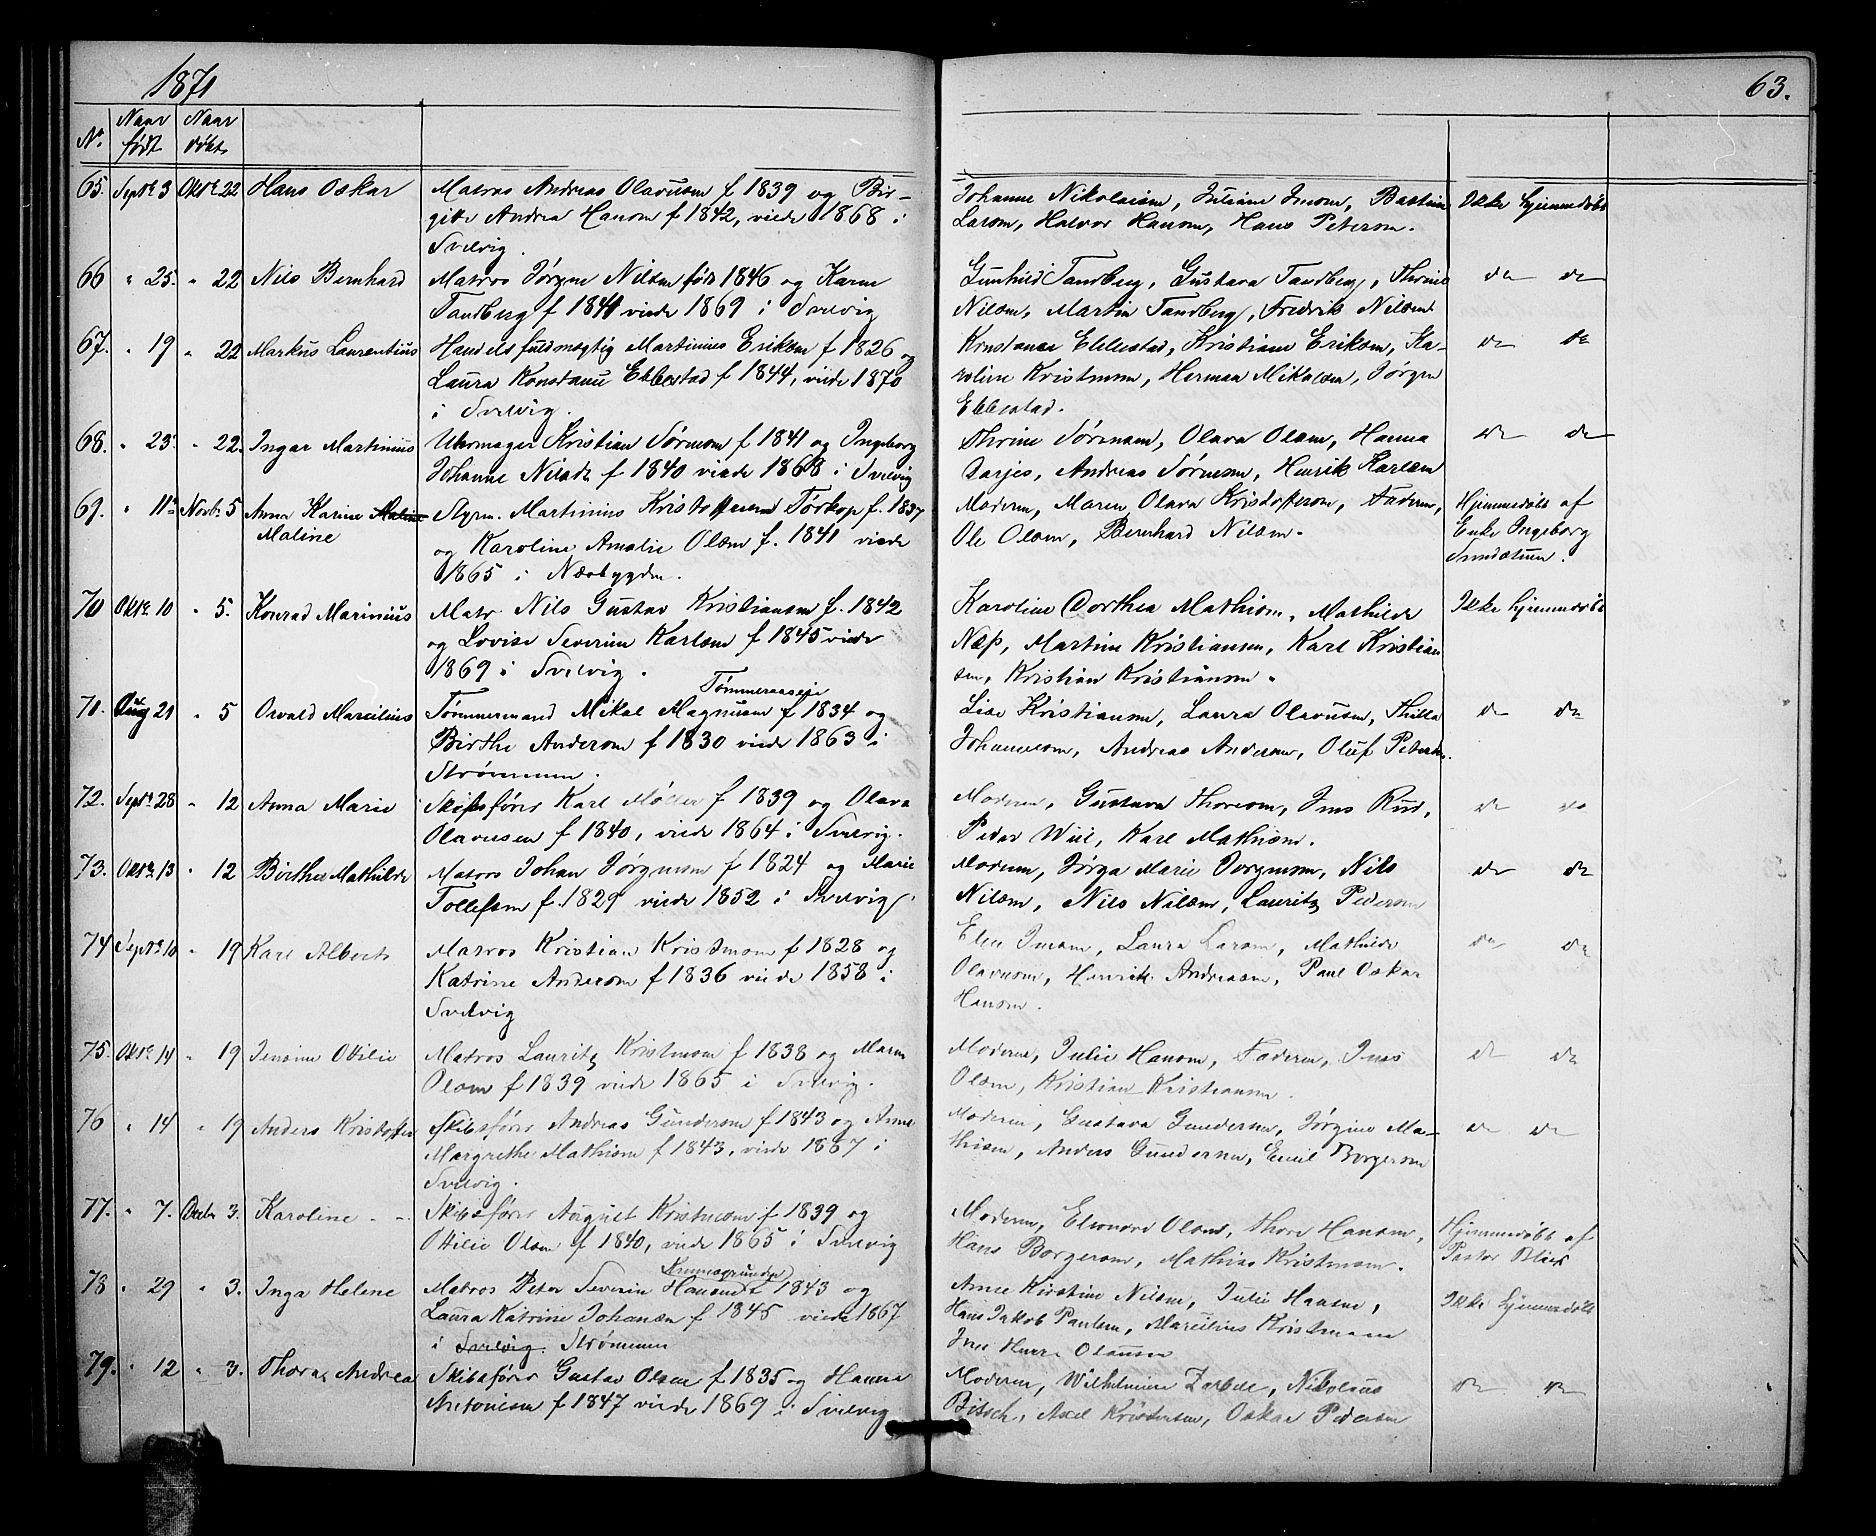 1871
63.
No. Naar født Naar døbt
65. Septr 3 Oktr 22 Hans Oskar Matros Andreas Olavusen f 1839 og Bir- Johanne Nikolaisen, Juliane Jensen, Bastine Ikke hjemmedøbt
gitte Andrea Hansen f 1842, viede 1868 i Larsen, Halvor Hansen, Hans Petersen.
Svelvig.
66 " 25. " 22 Nils Bernhard Matros Jørgen Nilsen født 1846 og Karen Gunhild Tandberg, Gustava Tandberg, Thrine do do
Tandberg f 1841 viede 1869 i Svelvig Nilsen, Martin Tandberg, Fredrik Nilsen
67. " 19 " 22 Markus Laurentius Handelsfuldmægtig Martinius Eriksen f 1826 og Konstance Ebbestad, Kristiane Eriksen, Ka- do do
Laura Konstance Ebbestad f 1844, viede 1870 roline Kristensen, Herman Mikalsen, Jørgen
i Svelvig. Ebbestad.
68. " 23. " 22. Ingar Martinius Uhrmager Kristian Sørensen f 1841 og Ingeborg Thrine Sørensen, Olava Olsen, Hanna do do
Johanne f 1840 viede 1868 i Svelvig Andreas Sørensen, Henrik Karlsen
69. " 11 Novbr 5 Anna Karine Maline Styrm. Martinius Kristoffersen Tørkop f. 1837 Moderen, Maren Olava Kristoffersen, Faderen, Hjemmedøbt af
Maline og Karoline Amalie Olsen f. 1841 viede Ole Olsen, Bernhard Nilsen. Enke Ingeborg
1865 i Næsbygden.
70 Oktr 10 " 5. Konrad Marinius Matr. Nils Gustav Kristiansen f. 1842 Karoline Dorthea Mathisen, Mathilde Ikke hjemmedøbt
og Lovise Severine Karlsen f 1845 viede Næss, Martine Kristiansen, Karl Kristian
1869 i Svelvig. sen, Kristian Kristiansen.
Tømmeraaseie
71. Aug 21 " 5 Osvald Marcilius Tømmermand Mikal Magnusen f 1834 og Lise Kristiansen, Laura Olavusen, Thilla do do
Birthe Andersen f 1830 viede 1863 i Johannesen, Andreas Andersen, Oluf Petersen.
Strømmen.
72. Septr 28 " 12 Anna Marie Skibsfører Karl Møller f 1839 og Olava Moderen, Gustava Thoresen, Jens Rud, do do
Olavesen f 1840, viede 1864 i Svelvig. Peder Wiel, Karl Mathisen.
73. Oktr 13 " 12 Birthe Mathilde Matros Johan Jørgensen f 1824 og Marie Moderen, Jørga Marie Jørgensen, Nils do do
Tollefsen f. 1829 viede 1852 i Svelvig. Nilsen, Nils Nilsen, Lauritz Pedersen
74 Septr 10 " 19 Karl Albert Matros Kristian Kristensen f 1828 og Elise Jensen, Laura Larsen, Mathilde do do
Katrine Andersen f 1836 viede 1858 i Olavusen, Henrik Andreasen, Paul Oskar
Svelvig Hansen.
75. Oktr 14 " 19 Jensine Otilie Matros Lauritz Kristensen f 1838 og Maren Moderen, Julie Hansen, Faderen, Jens do do
Olsen f 1839 viede 1865 i Svelvig. Olsen, Kristian Kristiansen.
76 " 14 " 19 Anders Kristoffer Skibsfører Andreas Gundersen f 1843 og Anne Moderen, Gustava Gundersen, Jørgine Ma- do do
Margrethe Mathisen f 1843, viede 1867 i thisen, Anders Gundersen, Emil Borgersen
Svelvig.
77. " 7. Decbr 3. Karoline Skibsfører August Kristensen f 1839 og Moderen, Eleonore Olsen, Thore Hansen, Hjemmedøbt af
Otilie Olsen f 1840, viede 1865 i Svelvig Hans Borgersen, Mathias Kristensen. Pastor Blich
78 " 29 " 3. Inga Helene Matros Peter Severin Hansen f 1843 og Anne Kirstine Nilsen, Julie Hansen, Ikke hjemmedøbt
Laura Katrine Johansen f 1845 viede 1867 Hans Jakob Paulsen, Marcilius Kristensen
i Svelvig. Strømmen Olausen
79. " 12 " 3. Thora Andrea Skibsfører Gustav Olsen f 1835 og Hanna Moderen, Wilhelmine Nikolaus do do
Antonisen f 1847 viede 1869 i Svelvig Axel Kristensen, Oskar Pedersen